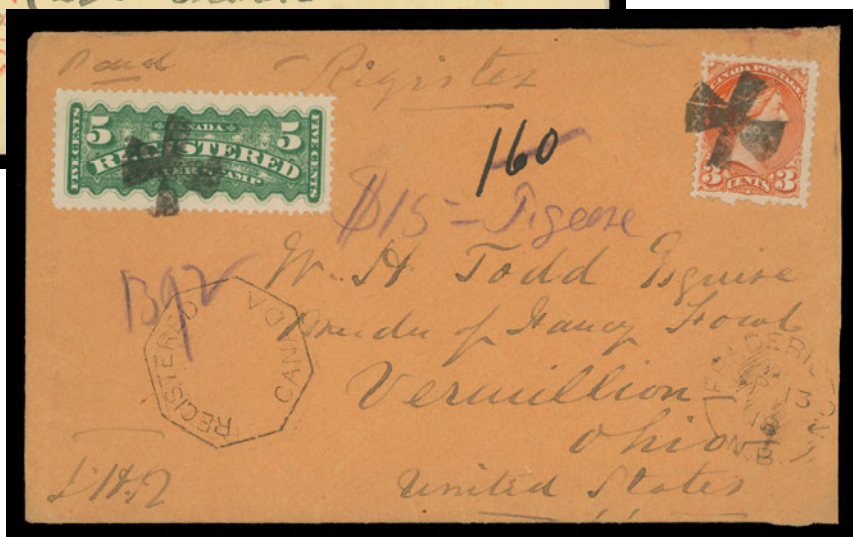 Paid Register
5 CANADA 5
FIVE CENTS REGISTERED FIVE CENTS
LETTER STAMP
CANADA POSTAGE
3 CENTS 3
160
$15 =
W. H. Todd Esquire
of Fancy Fowls
Vermillion
Ohio
United States
REGISTERED
CANADA
FREDERICTON
AP 13
N.B.